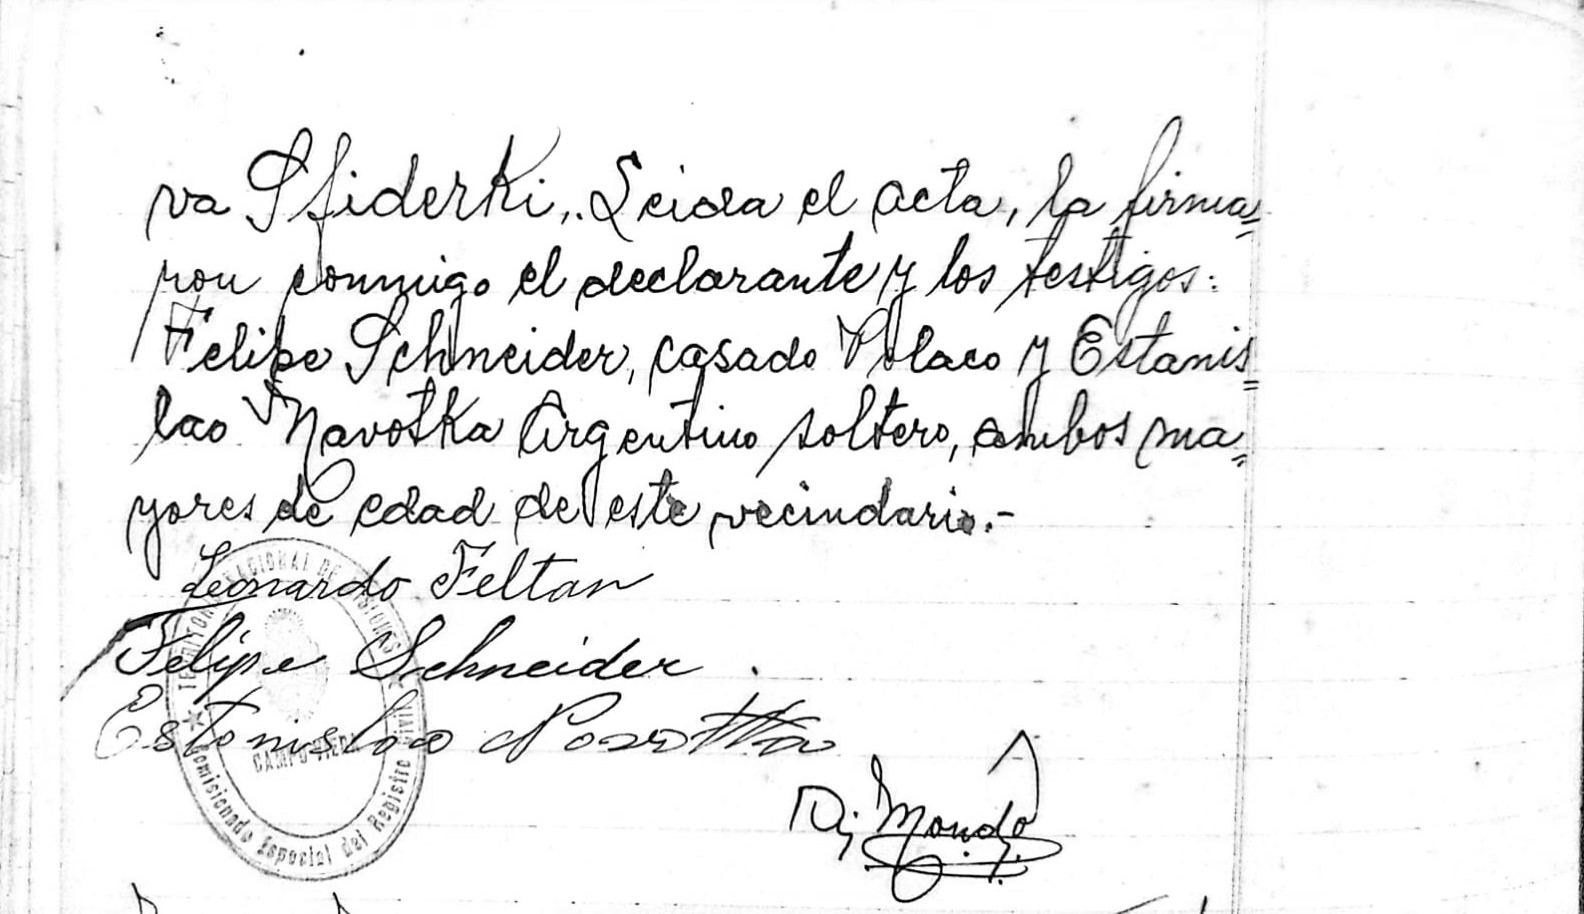 va Sfiderki, Leida el acta, la firma=
ron conmigo el declarante y los testigos:
Felipe Schneider, casado Polaco y Estanis=
lao Navotka Argentino soltero, ambos ma=
yores de edad de este vecindario.-
Leonardo Feltan
Felipe Schneider
Estanislao
TERRITORIO NACIONAL DE MISIONES
CAMPO
Comisionado Especial del Registro Civil